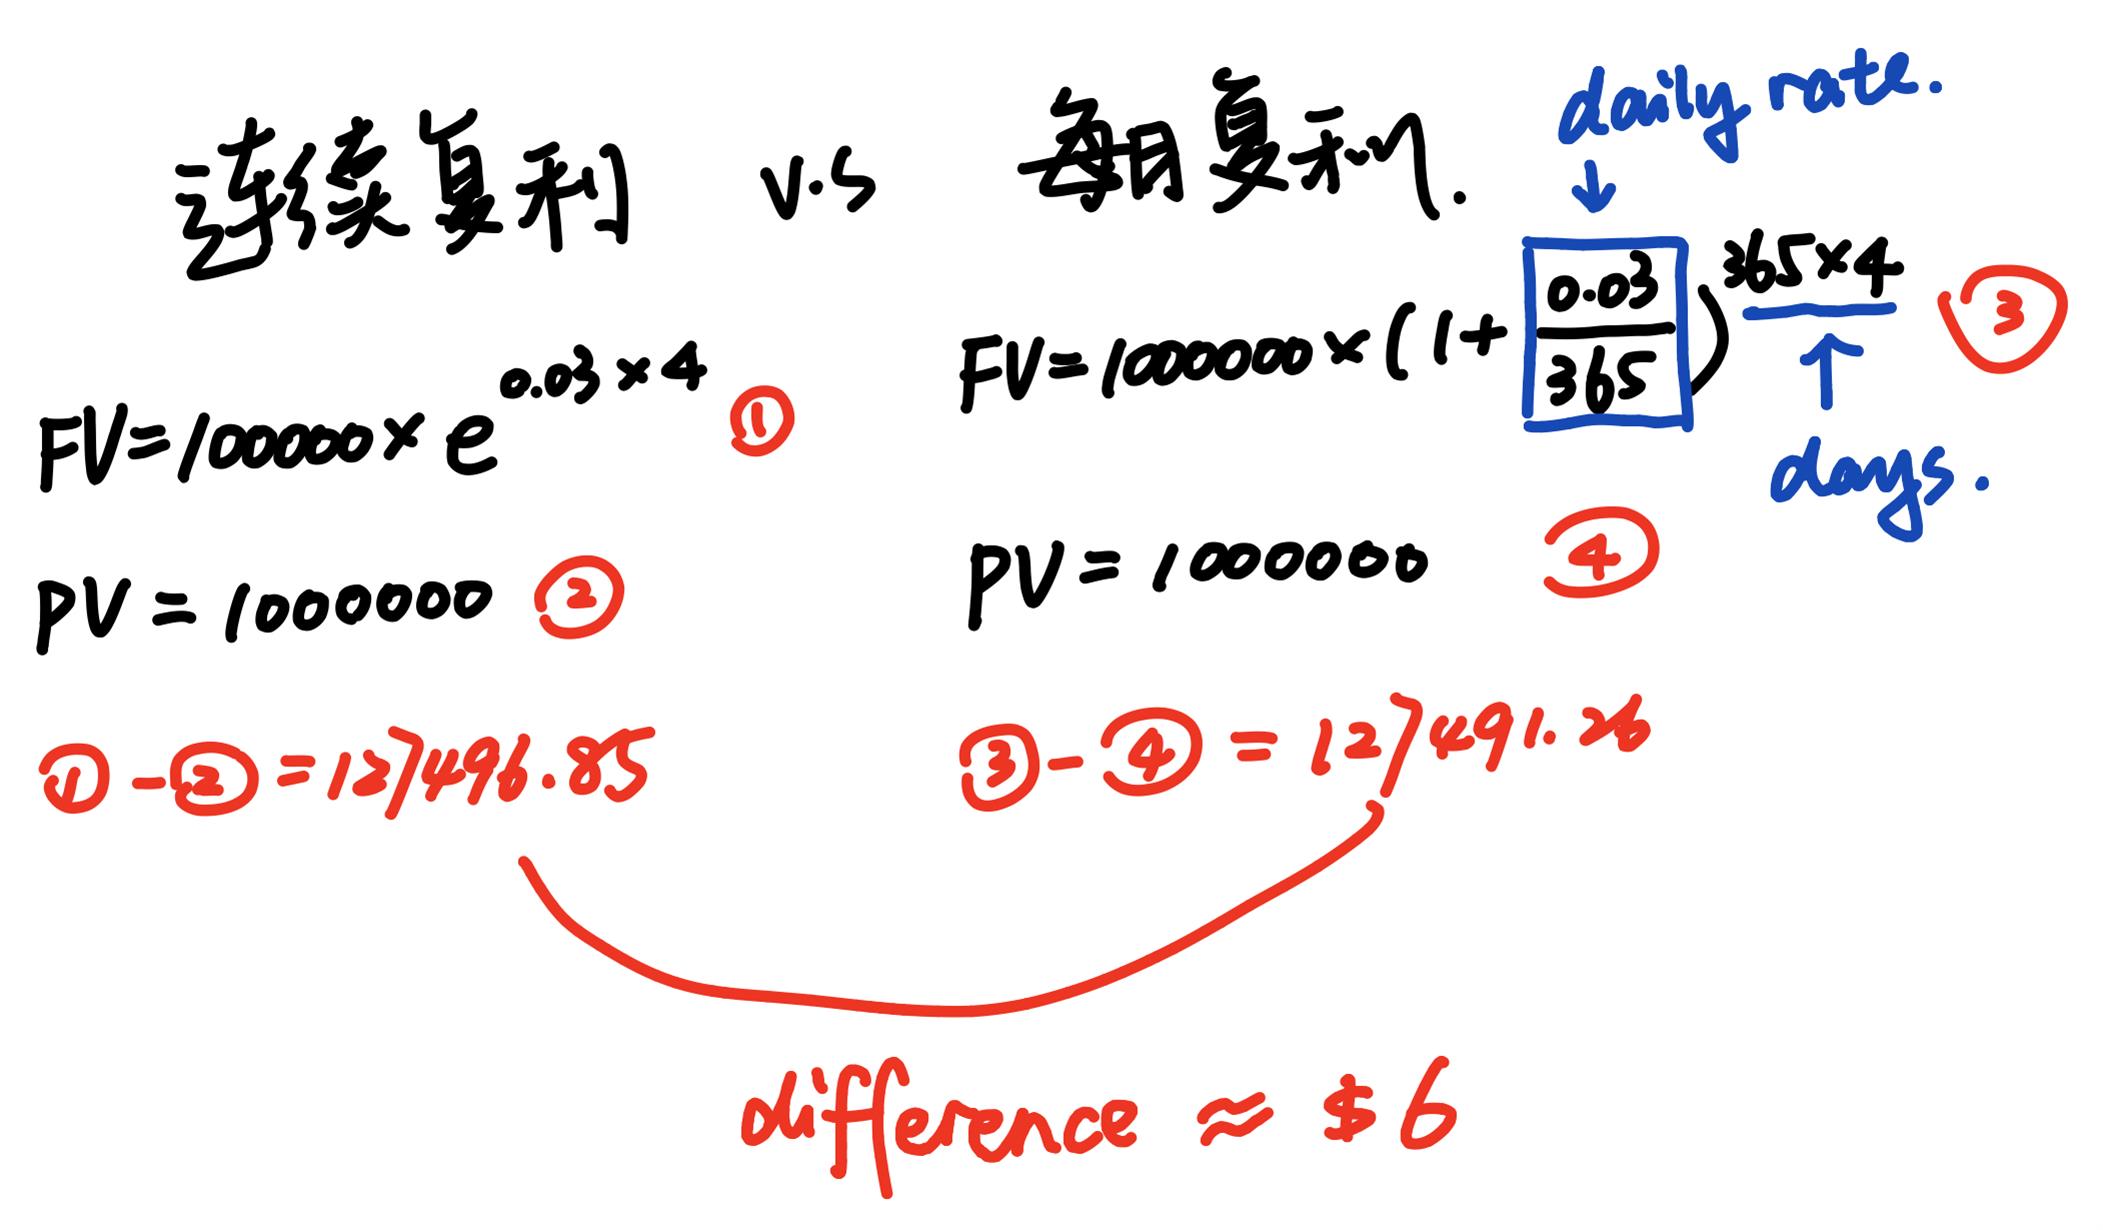 连续复利 v.s 每日复利.
daily rate.
↓
FV=1000000×e^0.03×4 ①
FV=1000000×(1+0.03/365)^365×4 ③
↑
days.
PV=1000000 ②
PV=1000000 ④
①-②=127496.85
③-④=127491.26
difference ≈ $6